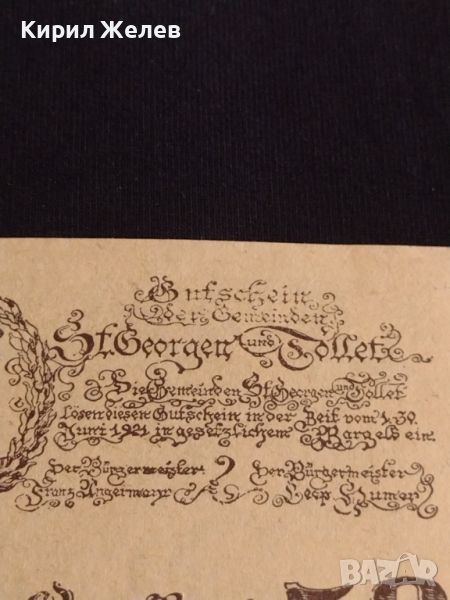 Кирил Желев
Gutschein
der Gemeinden
St. Georgen und Tollet
Die Gemeinden St. Georgen und Tollet
lösen diesen Gutschein in der Zeit vom 1.-30.
Juni 1921 in gesetzlichem Bargeld ein.
Der Bürgermeister: Der Bürgermeister
Franz Angermayr Leop. Humer
50
BAZAR